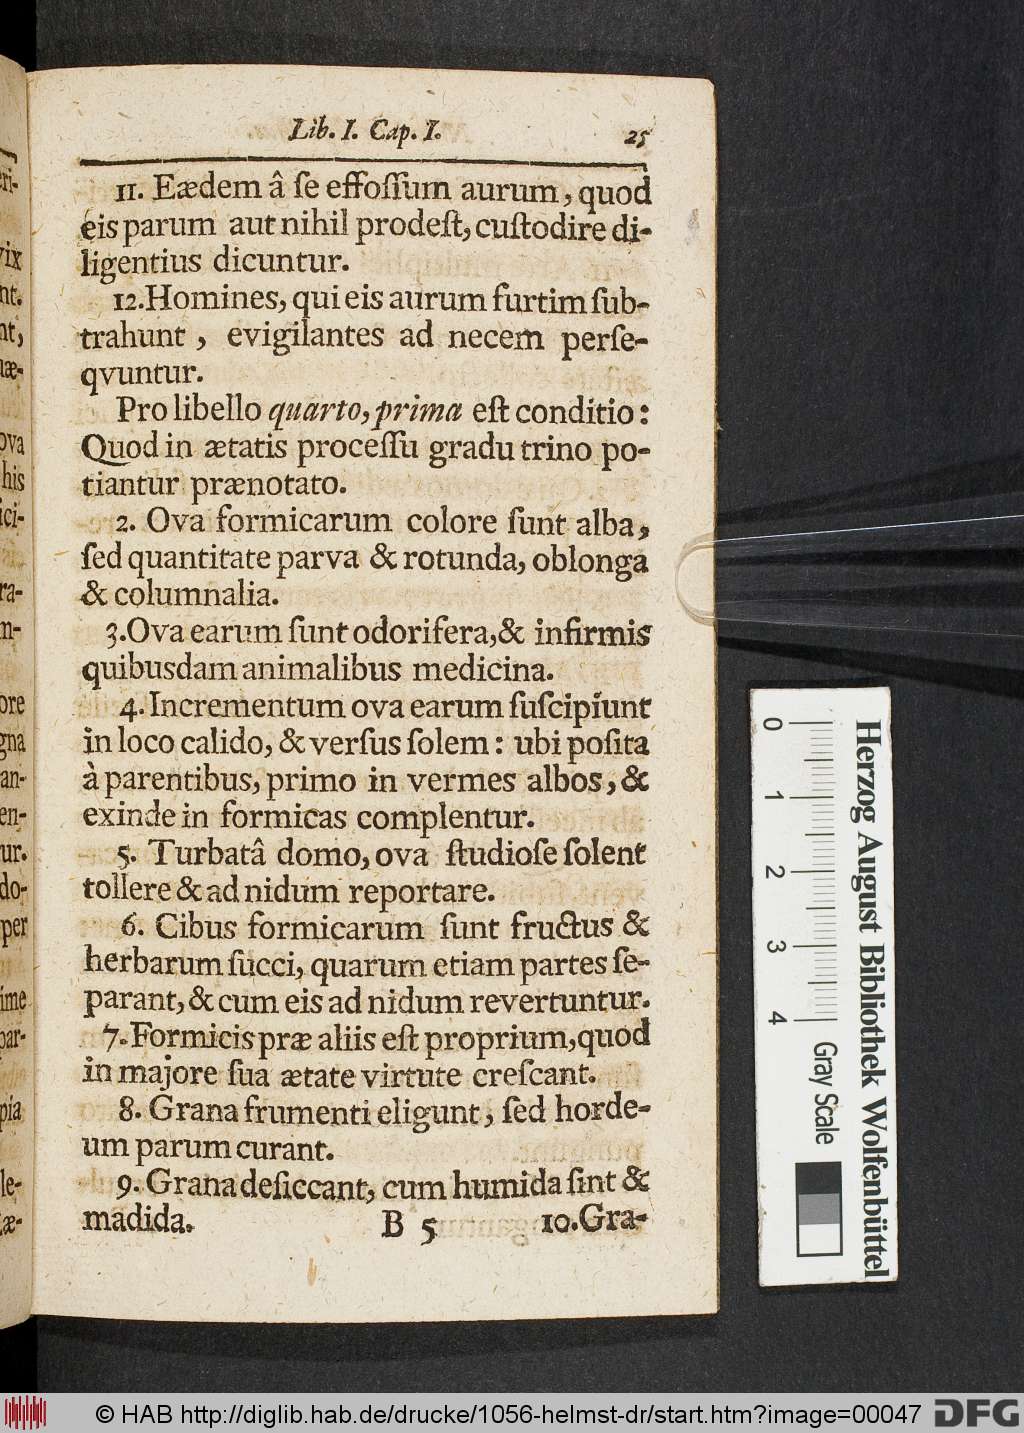 Lib. I. Cap. I. 25
11. Eædem â ſe effoſſum aurum, quod
eis parum aut nihil prodeſt, cuſtodire di-
ligentius dicuntur.
12. Homines, qui eis aurum furtim ſub-
trahunt, evigilantes ad necem perſe-
qvuntur.
Pro libello quarto, prima eſt conditio:
Quod in ætatis proceſſu gradu trino po-
tiantur prænotato.
2. Ova formicarum colore ſunt alba,
ſed quantitate parva & rotunda, oblonga
& columnalia.
3. Ova earum ſunt odorifera, & infirmis
quibusdam animalibus medicina.
4. Incrementum ova earum ſuſcipiunt
in loco calido, & verſus ſolem: ubi poſita
à parentibus, primo in vermes albos, &
exinde in formicas complentur.
5. Turbatâ domo, ova ſtudioſe ſolent
tollere & ad nidum reportare.
6. Cibus formicarum ſunt fructus &
herbarum ſucci, quarum etiam partes ſe-
parant, & cum eis ad nidum revertuntur.
7. Formicis præ aliis eſt proprium, quod
in majore ſua ætate virtute creſcant.
8. Grana frumenti eligunt, ſed horde-
um parum curant.
9. Grana deſiccant, cum humida ſint &
madida. B 5 10. Gra-
0 1 2 3 4 Gray Scale
Herzog August Bibliothek Wolfenbüttel
© HAB http://diglib.hab.de/drucke/1056-helmst-dr/start.htm?image=00047 DFG